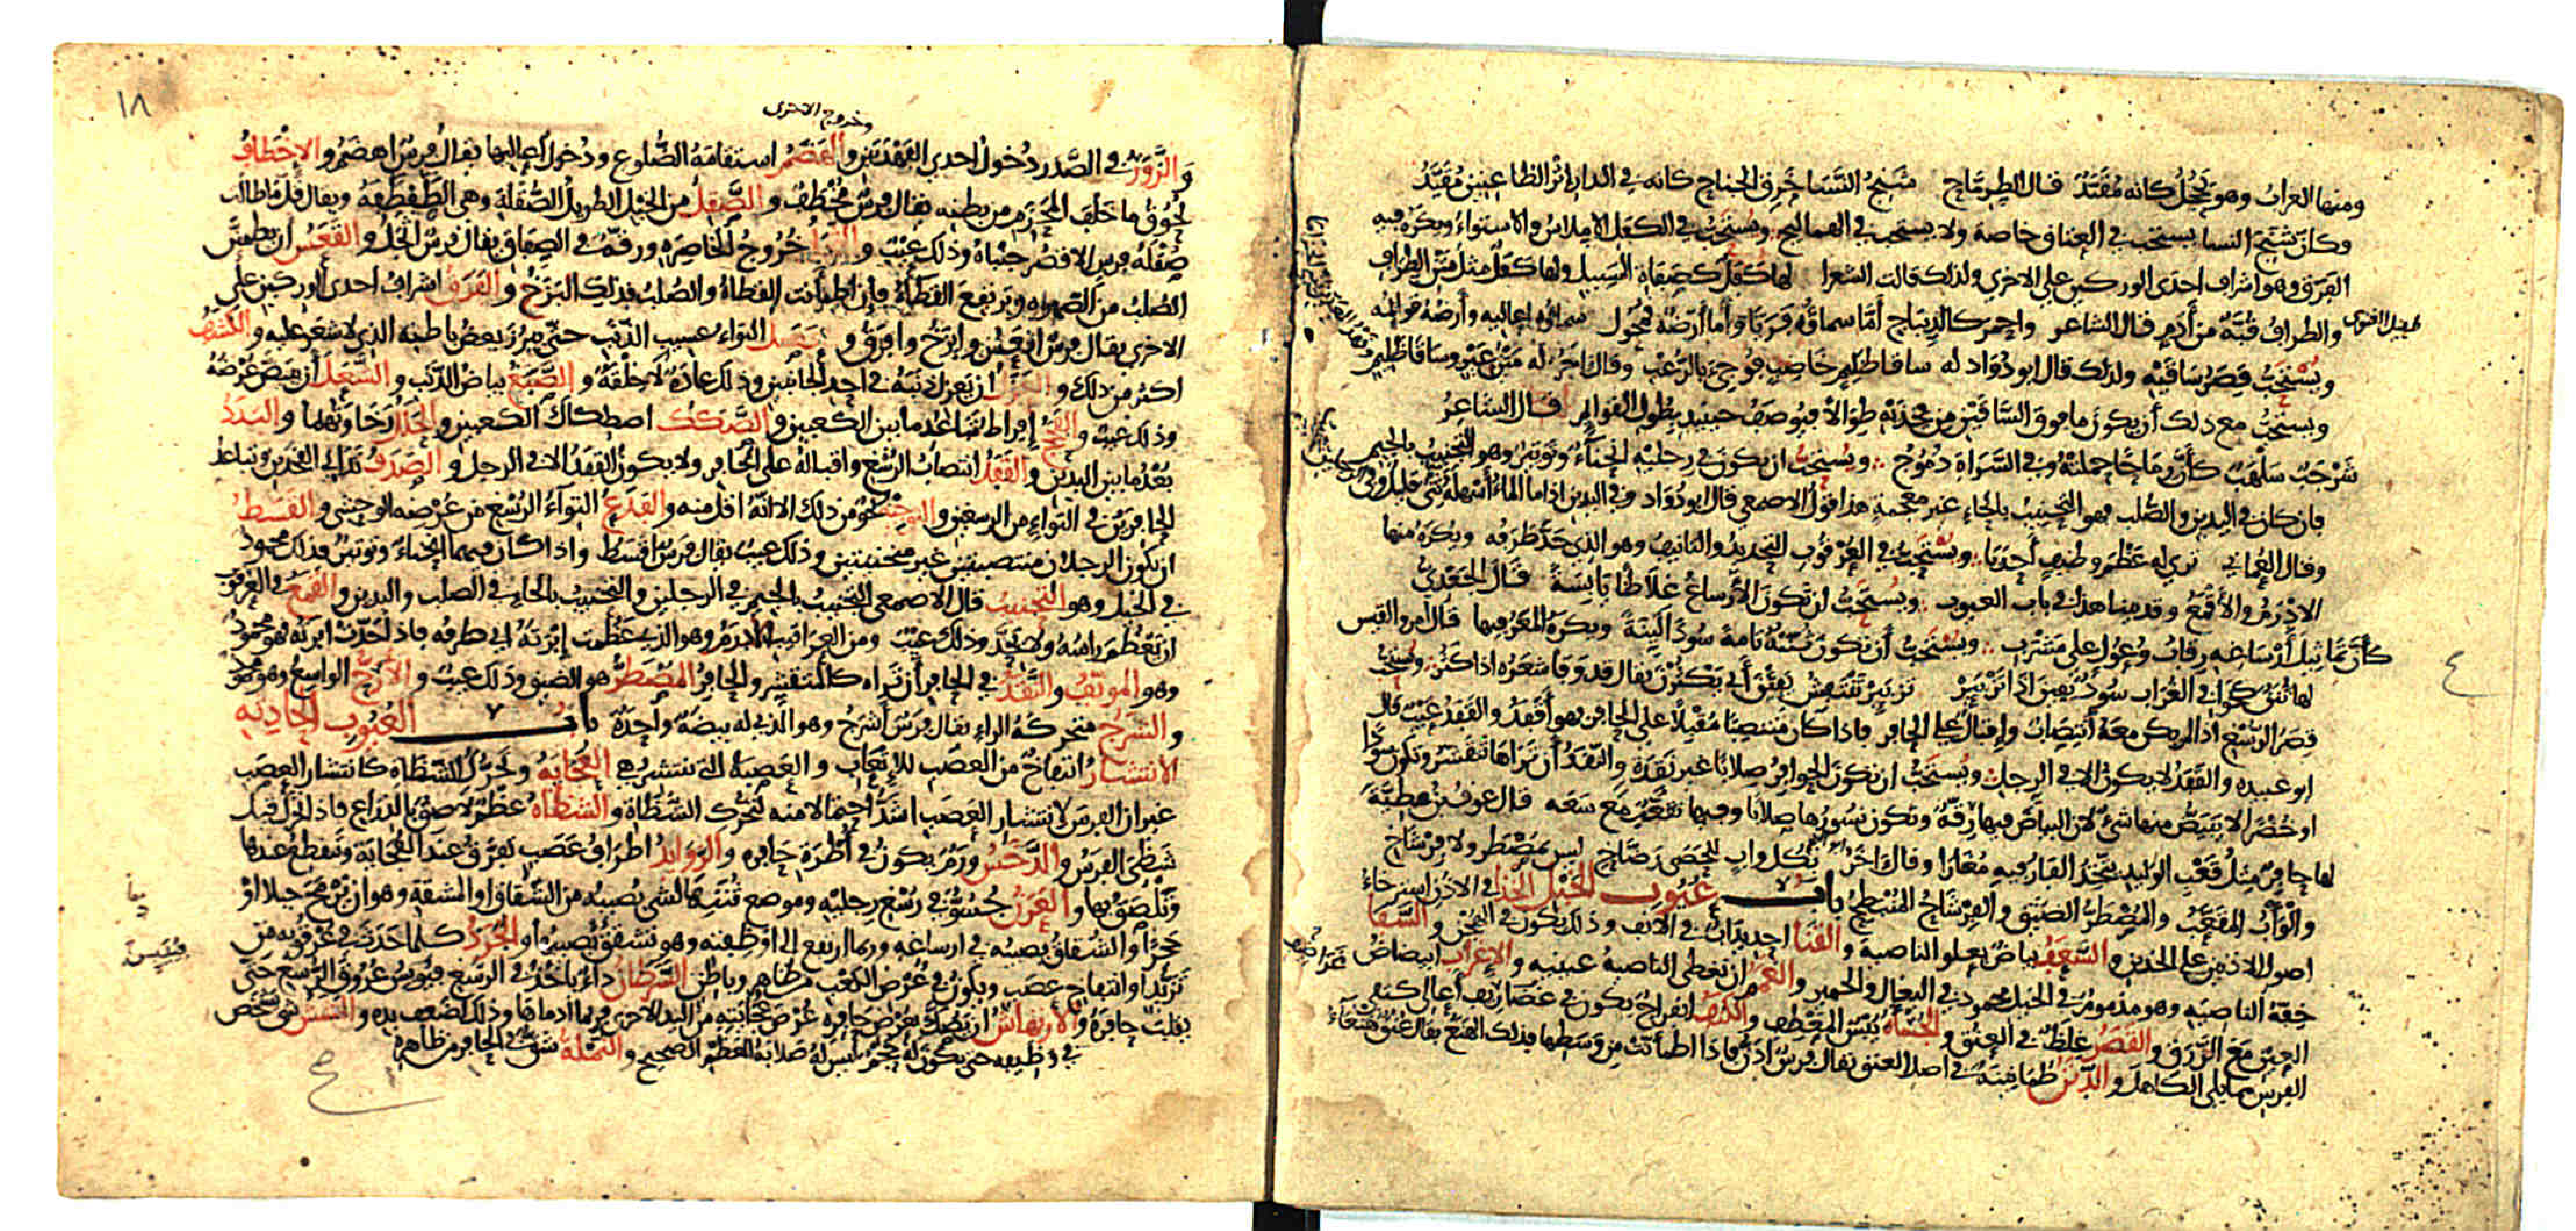 ومنها الغراب وهو يحجل كانه مقيد قال الطرماح شنج النسا خرق الجناح كانه في الدار اثر الظاعنين مقيد
وكان شنج النسا يستحب في العتاق خاصة ولا يستحب في الهماليج ويستحب في الكفل الاملاس والاستواء ويكره فيه
الفرق وهو اشراف احدى الوركين على الاخرى ولذلك قالت الشعرا لها كفل كصفاة المسيل ولها كفل مثل متن الطراف
طفيل الغنوي
والطراف قبة من أدم قال الشاعر واحمر كالديباج أما سماؤه فريا وأما أرضه فمحول سماؤه اعاليه وأرضه قوائمه
ويستحب قصر ساقيه ولذلك قال ابو دؤاد له ساقا ظليم خاضب فوجئ بالرعب وقال اخر له متن عير وساقا ظليم
ويستحب مع ذلك أن يكون ما فوق الساقين من فخذيه طويلا فيوصف حينئذ بطول القوائم قال الشاعر
شرجب سلهب كأن رماحا حملته وفي السراة دموج ويستحب ان يكون في رجليه انحناء وتوتير وهو التجنيب بالجيم
فان كان في اليدين والصلب فهو التحنيب بالحاء غير معجمة هذا قول الاصمعي قال ابو دؤاد وفي اليدين اذا ما الماء أسهله ثني قليل وفي
وقال العماني ترى له عظم وظيف أحدبا ويستحب في العرقوب التحديد والتانيف وهو الذي حد طرفه ويكره منها
الادرم والأقمع وقد بينا هذا في باب العيوب ويستحب ان تكون الأرساغ غلاظا يابسة قال الجعدي
كأن تماثيل أرساغه رقاب وعول على مشرب ويستحب أن تكون ثننه تامة سودا لينة ويكره المعر فيها قال امرؤ القيس
لها ثنن كخوافي العقاب سود يفين اذا تزبئر تزبئر تنتفش يفين أي يكثرن يقال قد وفا شعره اذا كثر ويستحب
قصر الرسغ اذا لم يكن معه انتصاب واقبال على الحافر فاذا كان منتصبا مقبلا على الحافر فهو أقفد والقفد عيب قال
ابو عبيده والقفد لا يكون الا في الرجل ويستحب ان تكون الحوافر صلابا غير نقدة والنقد أن تراها تتقشر وتكون سودا
او خضرا لا يبيض منها شئ لان البياض فيها رقة وتكون نسورها صلابا وفيها تقعب مع سعه قال عوف بن عطية
لها حافر مثل قعب الوليد يتخذ الفار فيه مغارا وقال اخر بكل واب للحصى رضاح ليس بمصطر ولا فرشاح
والوأب المقعب والمصطر الضيق والفرشاح المنبطح باب عيوب الخيل الخذا في الاذن استرخاء
اصول الاذنين على الخدين والسعف بياض يعلو الناصية والقنا احديداب في الانف وذلك يكون في الهجن والسفا
خفة الناصية وهو مذموم في الخيل محمود في البغال والحمير والغمم ان تغطي الناصية عينيه والاغراب ابيضاض
العين مع الزرق والقصر غلظ في العنق والجساة يبس المعطف والكتف انفراج يكون في غضاريف أعالي كتفي
الفرس مما يلي الكاهل والدنن طمانينة في اصل العنق يقال فرس ادن فاذا اطمأنت من وسطها فذلك الهنع يقال عنق هنعاء
١٨
وخروج الاخرى
والزور في الصدر دخول احدى الفهدتين والهضم استقامة الضلوع ودخول أعاليها يقال فرس اهضم والاخطاف
لحوق ما خلف المحزم من بطنه يقال فرس مخطف والصقل من الخيل الطويل الصقلة وهي الطفطفة ويقال قل ما طالت
صقلة فرس الا قصر جنباه وذلك عيب والثجل خروج الخاصره ورقة في الصفاق يقال فرس اثجل والقعس ان يطمئن
الصلب من الصهوه وترتفع القطاة فإن اطمأنت القطاة والصلب فذلك البزخ والفرق اشراف احدى الوركين على
الاخرى يقال فرس اقعس وابزخ وافرق والعصل التواء عسيب الذنب حتى يبرز بعض باطنه الذي لا شعر عليه والكشف
اكثر من ذلك والعزل ان يعزل ذنبه في احد الجانبين وذلك عادة لا خلقة والصبغ بياض الذنب والشعل أن يبيض عرضه
وذلك عيب والفحج إفراط تباعد ما بين الكعبين والصكك اصطكاك الكعبين والحلل رخاوتهما والبدد
بعد ما بين اليدين والقفد انتصاب الرسغ واقباله على الحافر ولا يكون القفد الا في الرجل والصدف تداني الفخذين وتباعد
الحافرين في التواء من الرسغين والتوجيه نحو من ذلك الا انه اقل منه والفدع التواء الرسغ من عرضه الوحشي والقسط
ان يكون الرجلان منتصبتين غير منحنيتين وذلك عيب يقال فرس اقسط واذا كان فيهما انحناء وتوتير فذلك محمود
في الخيل وهو التجنيب قال الاصمعي التجنيب بالجيم في الرجلين والتحنيب بالحاء في الصلب واليدين والقمع في العرقوب
ان يعظم راسه ولا يحد وذلك عيب ومن العراقيب الادرم وهو الذي عظمت إبرته اي طرفه فاذا حدت ابرته فهو محمود
وهو المونف والنقد في الحافر أن تراه كالمتقشر والحافر المصطر هو الضيق وذلك عيب والأرح الواسع وهو محمود
والشرج متحركة الراء يقال فرس أشرج وهو الذي له بيضة واحدة باب العيوب الحادثة
الانتشار انتفاخ من العصب للاتعاب والعصبة التي تنتشر هي العجاية وتحرك الشظاة كانتشار العصب
غير ان الفرس لانتشار العصب اشد احتمالا منه لتحرك الشظاة والشظاة عظم لاصق بالذراع فاذا تحرك قيل
شظي الفرس والدخس ورم يكون في أطرة حافره والزوايد اطراف عصب تفرق عند العجاية وتنقطع عندها
وتلصق بها والعرن جسوء في رسغ رجليه وموضع ثننها لشئ يصيبه من الشقاق او المشقة وهو ان ترمح جبلا او
حجرا والشقاق يصيبه في ارساغه وربما ارتفع الى اوظفته وهو تشقق يصيبها والجرد كل ما حدث في عرقوبه من
تزيد او انتفاخ عصب ويكون في عرض الكعب من ظاهر وباطن السرطان داء ياخذ في الرسغ فييبس عروق الرسغ حتى
يقلب حافره والارتهاش ان يصك بعرض حافره عرض عجايته من اليد الاخرى فربما أدماها وذلك لضعف يده والنمش شئ يشخص
في وظيفه حتى يكون له حجم ليس له صلابة العظم الصحيح والنملة شق في الحافر من ظاهره